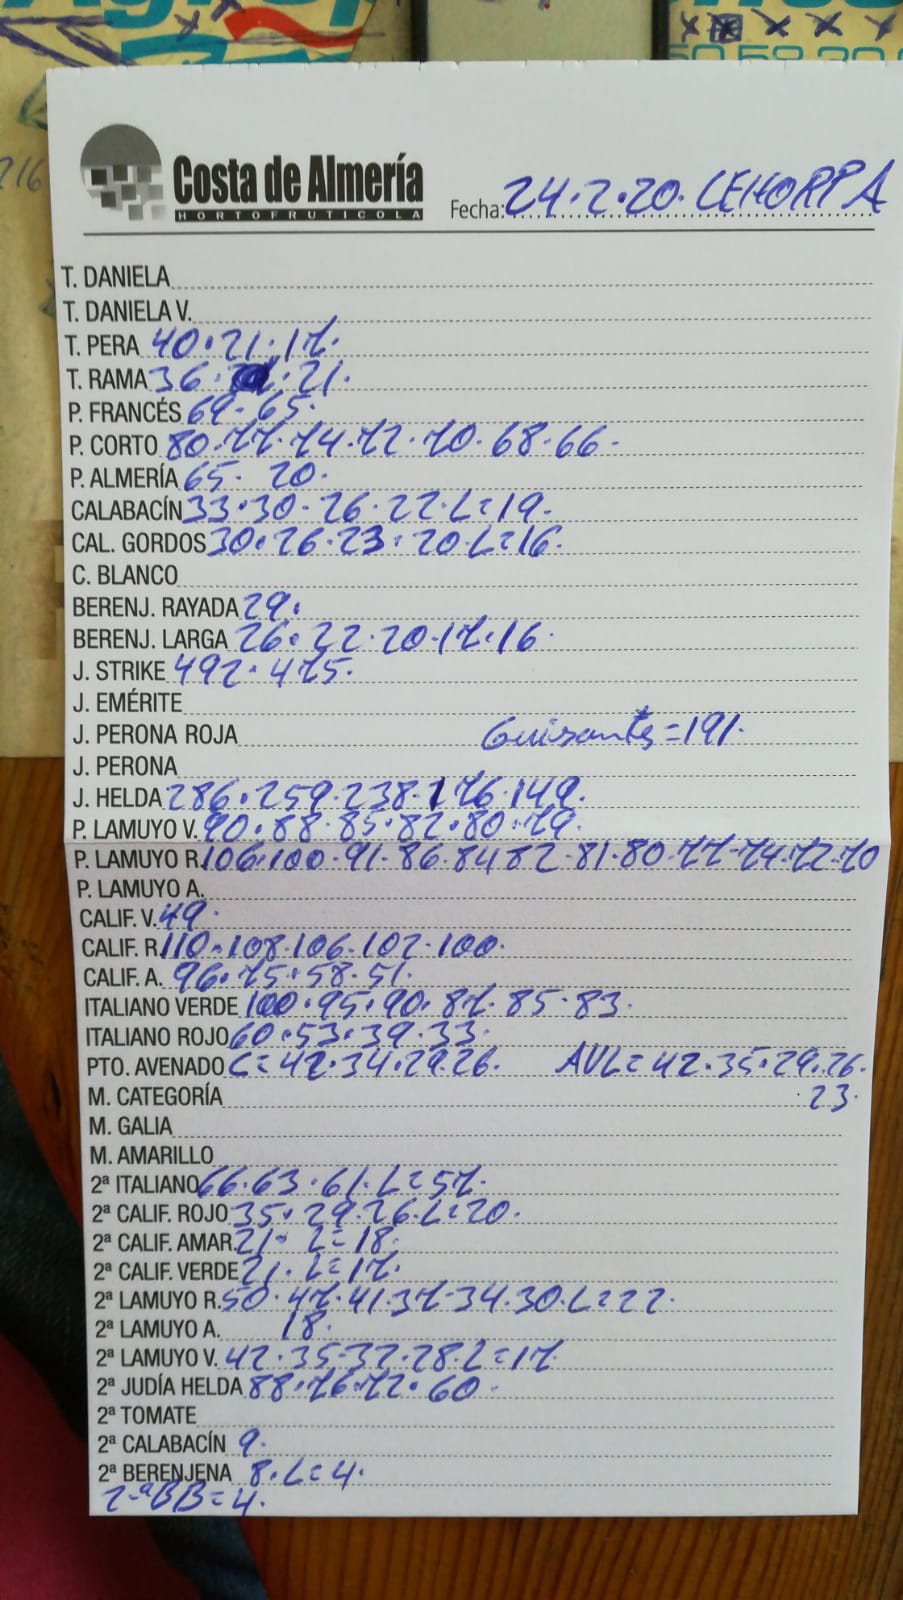 Costa de Almería
HORTOFRUTICOLA
Fecha: 24.2.20. CEHORPA
T. DANIELA
T. DANIELA V.
T. PERA 40.21.17.
T. RAMA 36. .21.
P. FRANCÉS 69-65.
P. CORTO 80.77.74.72.70.68.66-
P. ALMERÍA 65. 20.
CALABACÍN 33.30-26.22.L=19.
CAL. GORDOS 30.26.23.20.L=16.
C. BLANCO
BERENJ. RAYADA 29.
BERENJ. LARGA 26.22.20.17.16.
J. STRIKE 492.475.
J. EMÉRITE
J. PERONA ROJA Guisantes=191.
J. PERONA
J. HELDA 286.259.238.176.149.
P. LAMUYO V. 90.88.85.82.80.79.
P. LAMUYO R. 106.100.91.86.84 82.81.80.77-74.72.70
P. LAMUYO A.
CALIF. V. 49.
CALIF. R. 110.108.106.102.100.
CALIF. A. 96.75.58.51.
ITALIANO VERDE 100.95.90.87.85.83.
ITALIANO ROJO 60.53.39.33.
PTO. AVENADO C=42.34.29.26. AVL=42.35.29.26.
M. CATEGORÍA .23.
M. GALIA
M. AMARILLO
2ª ITALIANO 66.63.61.L=57.
2ª CALIF. ROJO 35.29.26.L=20.
2ª CALIF. AMAR. 21. L=18.
2ª CALIF. VERDE 21.L=17.
2ª LAMUYO R. 50.47.41.37-34.30.L=22.
2ª LAMUYO A. 18.
2ª LAMUYO V. 42.35-32.28.L=17
2ª JUDÍA HELDA 88.76.72.60.
2ª TOMATE
2ª CALABACÍN 9.
2ª BERENJENA 8.L=4.
2-ªBB=4.